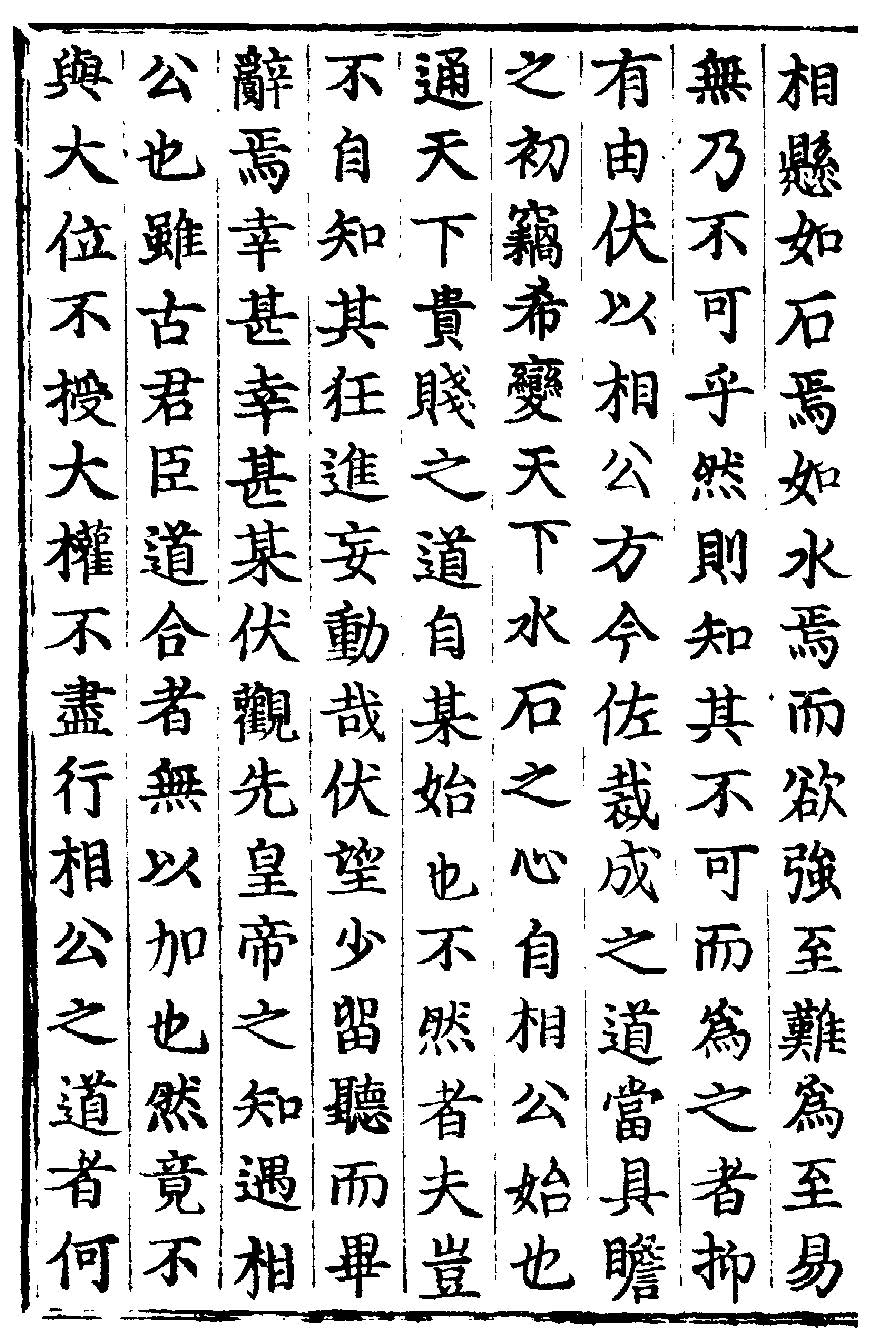 相懸如石焉如水焉而欲強至難為至易
無乃不可乎然則知其不可而為之者抑
有由伏以相公方今佐裁成之道當具瞻
之初竊希變天下水石之心自相公始也
通天下貴賤之道自某始也不然者夫豈
不自知其狂進妄動哉伏望少留聽而畢
辭焉幸甚幸甚某伏觀先皇帝之知遇相
公也雖古君臣道合者無以加也然竟不
與大位不授大權不盡行相公之道者何